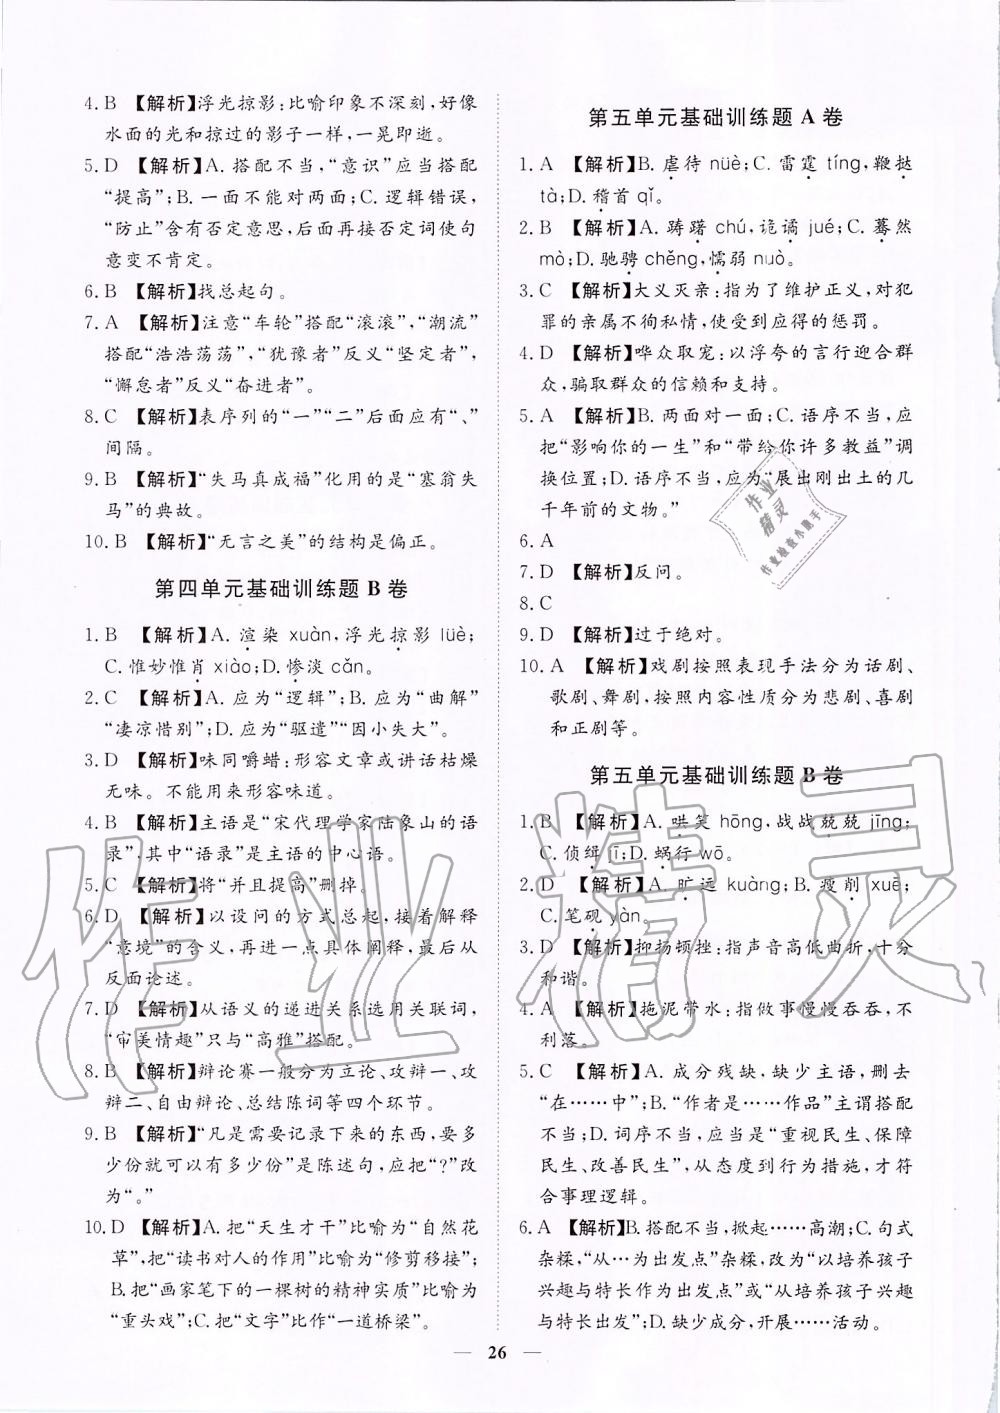 4. B 【解析】浮光掠影:比喻印象不深刻,好像
水面的光和掠过的影子一样,一晃即逝。
5. D 【解析】A. 搭配不当,“意识”应当搭配
“提高”;B. 一面不能对两面;C. 逻辑错误,
“防止”含有否定意思,后面再接否定词使句
意变不肯定。
6. B 【解析】找总起句。
7. A 【解析】注意“车轮”搭配“滚滚”,“潮流”
搭配“浩浩荡荡”,“犹豫者”反义“坚定者”,
“懈怠者”反义“奋进者”。
8. C 【解析】表序列的“一”“二”后面应有“、”
间隔。
9. B 【解析】“失马真成福”化用的是“塞翁失
马”的典故。
10. B 【解析】“无言之美”的结构是偏正。
第四单元基础训练题 B 卷
1. B 【解析】A. 渲染 xuàn,浮光掠影 lüè;
C. 惟妙惟肖 xiào;D. 惨淡 cǎn。
2. C 【解析】A. 应为“逻辑”;B. 应为“曲解”
“凄凉惜别”;D. 应为“驱遣”“因小失大”。
3. D 【解析】味同嚼蜡:形容文章或讲话枯燥
无味。不能用来形容味道。
4. B 【解析】主语是“宋代理学家陆象山的语
录”,其中“语录”是主语的中心语。
5. C 【解析】将“并且提高”删掉。
6. D 【解析】以设问的方式总起,接着解释
“意境”的含义,再进一点具体阐释,最后从
反面论述。
7. D 【解析】从语义的递进关系选用关联词,
“审美情趣”只与“高雅”搭配。
8. B 【解析】辩论赛一般分为立论、攻辩一、攻
辩二、自由辩论、总结陈词等四个环节。
9. B 【解析】“凡是需要记录下来的东西,要多
少份就可以有多少份”是陈述句,应把“?”改
为“。”
10. D 【解析】A. 把“天生才干”比喻为“自然花
草”,把“读书对人的作用”比喻为“修剪移接”;
B. 把“画家笔下的一棵树的精神实质”比喻为
“重头戏”;C. 把“文字”比作“一道桥梁”。
第五单元基础训练题 A 卷
1. A 【解析】B. 虐待 nüè;C. 雷霆 tíng,鞭挞
tà;D. 稽首 qǐ。
2. B 【解析】A. 踌躇 chú,诡谲 jué;C. 蓦然
mò;D. 驰骋 chěng,懦弱 nuò。
3. C 【解析】大义灭亲:指为了维护正义,对犯
罪的亲属不徇私情,使受到应得的惩罚。
4. D 【解析】哗众取宠:以浮夸的言行迎合群
众,骗取群众的信赖和支持。
5. A 【解析】B. 两面对一面;C. 语序不当,应
把“影响你的一生”和“带给你许多教益”调
换位置;D. 语序不当,应为“展出刚出土的几
千年前的文物。”
6. A
7. D 【解析】反问。
8. C
9. D 【解析】过于绝对。
10. A 【解析】戏剧按照表现手法分为话剧、
歌剧、舞剧,按照内容性质分为悲剧、喜剧
和正剧等。
第五单元基础训练题 B 卷
1. B 【解析】A. 哄笑 hōng,战战兢兢 jīng;
C. 侦缉 jī;D. 蜗行 wō。
2. D 【解析】A. 旷远 kuàng;B. 瘦削 xuē;
C. 笔砚 yàn。
3. D 【解析】抑扬顿挫:指声音高低曲折,十分
和谐。
4. A 【解析】拖泥带水:指做事慢慢吞吞,不
利落。
5. C 【解析】A. 成分残缺,缺少主语,删去
“在……中”;B. “作者是……作品”主谓搭配
不当;D. 词序不当,应当是“重视民生、保障
民生、改善民生”,从态度到行为措施,才符
合事理逻辑。
6. A 【解析】B. 搭配不当,掀起……高潮;C. 句式
杂糅,“从…为出发点”杂糅,改为“以培养孩子
兴趣与特长作为出发点”或“从培养孩子兴趣
与特长出发”;D. 缺少成分,开展……活动。
26
作业精灵
作业精灵
作业检查小助手